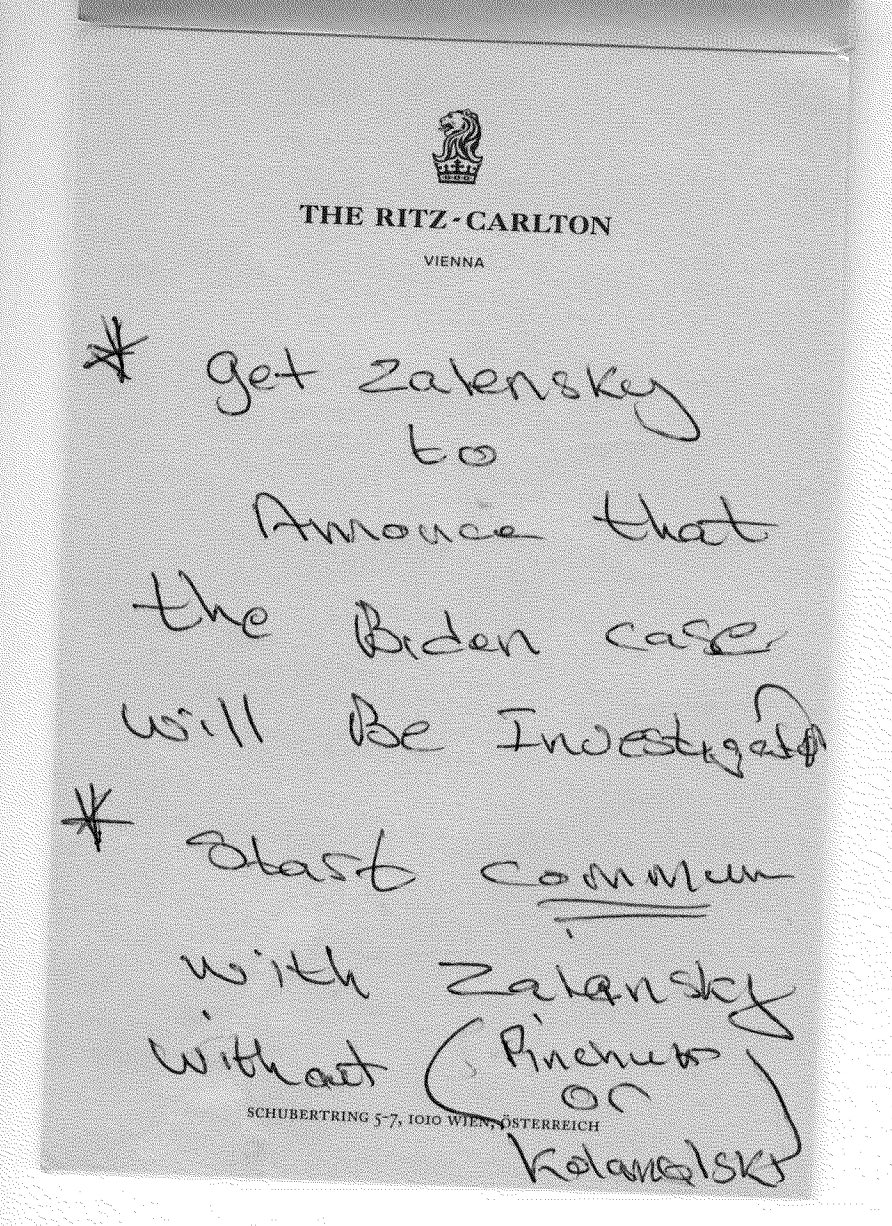 THE RITZ-CARLTON
VIENNA
* get Zalensky
to
Annouce that
the Biden case
will Be Investigated
* start commun
with Zalensky
without (Pinchuk
or
SCHUBERTRING 5-7, 1010 WIEN, ÖSTERREICH
Kolamolsky)